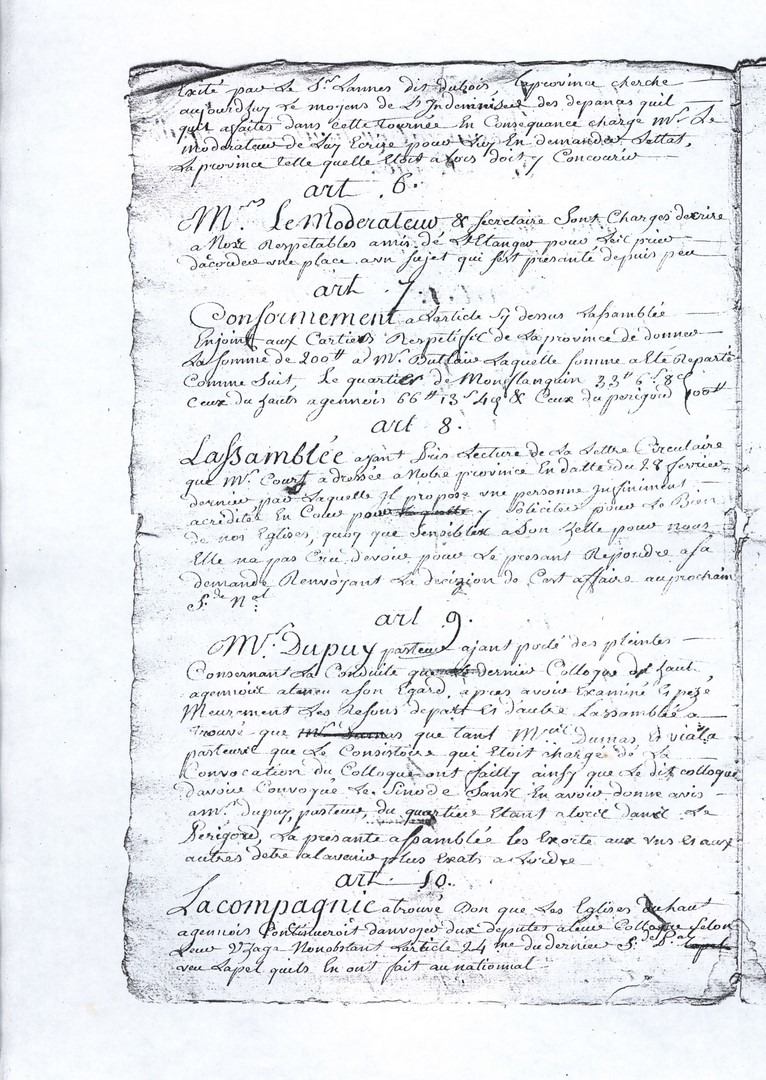 Exité par Le Sr. Lannes dit dubois Laprovince cherche
aujourdhuy Le moyens de L'Indemnisér des depanças quil
quil afaites dans cette tournée En Conséquance charge Mr. Le
moderateur de Luy Ecrire pour Luy En demander Lettat,
La province telle quelle Etoit alors doit y Concourir
art 6.
Mrs. Le Moderateur & Secretaire Sont Charges decrire
a Nost Respétables amis de L'Etanger pour Leis prier
dacorder une place a un sujet qui sera presanté depuis peu
art 7.
Conformement a Larticle cy dessus Lassamblée
Enjoint aux Cartiers Respetifs de Laprovince de donner
La somme de 200tt a Mr. Laquelle somme a Eté Repartie
Comme Suit, Le quartier de Monflanquin 33tt 6s 8d
Ceux du hauts agennois 66tt 13s 4d & Ceux du perigord 100tt
art 8.
Lassamblée ayant pris Lecture de La Lettre Circulaire
que Mr. Court adressée a Notre province En datte du 28 fevrier
dernier par Laquelle Il propose une personne Infiniment
acredités En Cour pour laquelle y Soliciter pour Le Bien
de nos Eglises, quoy que Sensibles a Son Zelle pour nous
Elle na pas Cru devoir pour Le presant Repondre a sa
demande Renvoyant La decizion de Cert affaire auprochain
S.de N.al
art 9.
Mr. Dupuy pasteur ajant porté des pleintes
Consernant La Conduite que dernier Colloque du haut
agennois a tenu a son Egard, apres avoir Examiné Es pezé
Meurement Les Resons depart Et d'autre Lassamblée a
trouvé que que tant Mrs. Dumas Et viala
pasteurs que Le Consistoire qui Etoit chargé de La
Convocation du Colloque ont failly ainsy que Le dit colloque
davoir Convoque Le Sinode Sans En avoir donné avis
a Mr. Dupuy, pasteur, du quartier Etant alors dans Le
Périgord, La presante assamblée les Exorte aux uns Et aux
autres detre alavenir plus Exats a Lordre
art 10.
La compagnie a trouvé Bon que Les Eglises du haut
agennois Continueroit danvoyer dux deputes a leur Colloque Selon
Leur Uzage Nonobstant Larticle 24 me du dernier S.de P.al
veu Lapel quils En ont fait au nationnal